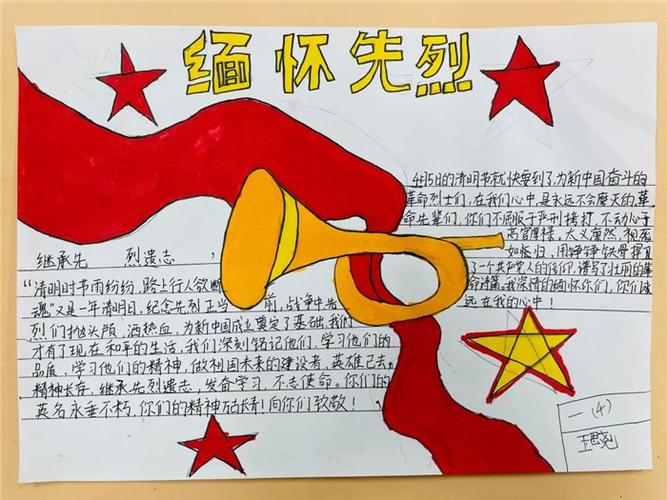 缅怀先烈
继承先 烈遗志,
“清明时节雨纷纷,路上行人欲断
魂”又是一年清明日,纪念先烈正当 前,战争中先
烈们抛头颅,洒热血,为新中国成立奠定了基础,我们
才有了现在和平的生活,我们深刻铭记他们,学习他们的
品质,学习他们的精神,做祖国未来的建设者,英雄已去,
精神长存,继承先烈遗志,发奋学习,不忘使命。你们的
英名永垂不朽,你们的精神万古长青!向你们致敬!
4月5日的清明节就快要到了,为新中国奋斗的
革命烈士们,在我们心中,是永远不会磨灭的,革
命先辈们,你们不屈服于严刑拷打,不动心于
高官厚禄,大义凛然,视死
如归,用铮铮铁骨捍卫
了一个共产党人的信仰,谱写了壮丽的革
命诗篇。我深情的缅怀你们,你们永
远在我的心中!
一(4)